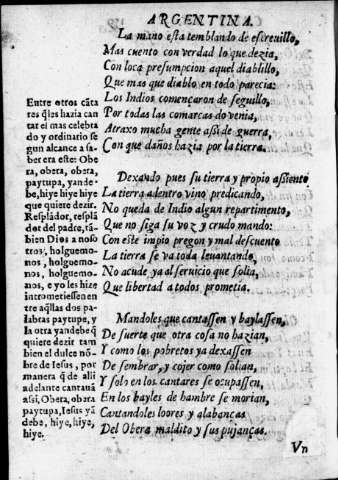 ARGENTINA.
La mano esta temblando de escreuillo,
Mas cuento con verdad lo que dezia,
Con loca presumpcion aquel diablillo,
Que mas que diablo en todo parecia:
Los Indios començaron de seguillo,
Por todas las comarcas do venia,
Atraxo mucha gente assi de guerra,
Con que daños hazia por la tierra.
Dexando pues su tierra y propio assiento
La tierra adentro vino predicando,
No queda de Indio algun repartimento,
Que no siga su voz y crudo mando:
Con este impio pregon y mal descuento
La tierra se va toda leuantando,
No acude ya al seruicio que solia,
Que libertad a todos prometia.
Mandoles que cantassen y baylassen,
De suerte que otra cosa no hazian,
Y como los pobretos ya dexassen
De sembrar, y cojer como solian,
Y solo en los cantares se ocupassen,
En los bayles de hambre se morian,
Cantandoles loores y alabanças
Del Obera maldito y sus pujanças.
Entre otros cãta
res q̃les hazia can
tar el mas celebra
do y ordinario se
gun alcance a sa-
ber era este: Obe
ra, obera, obera,
paytupa, yande-
be, hiye hiye hiye
que quiere dezir.
Resplãdor, resplã
dor del padre, tã-
bien Dios a noso
tros, holguemo-
nos, holguemo-
nos, holguemo-
nos, e yo les hize
intrometiessen en
tre aq̃llas dos pa-
labras paytupa, y
la otra yandebe q̃
quiere dezir tam
bien el dulce nõ-
bre de Iesus, por
manera q̃ de alli
adelante cantauã
assi, Obera, obera
paytupa, Iesus yã
debe, hiye, hiye,
hiye.
Vn